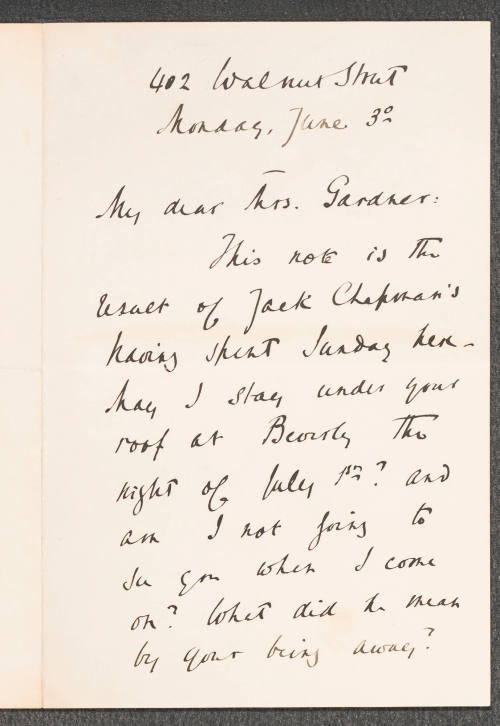 402 Walnut Street
Monday, June 3º
My dear Mrs. Gardner:
This note is the
result of Jack Chapman's
having spent Sunday here –
May I stay under your
roof at Beverly the
night of July 1st? and
am I not going to
see you when I come
on? What did he mean
by your being away?